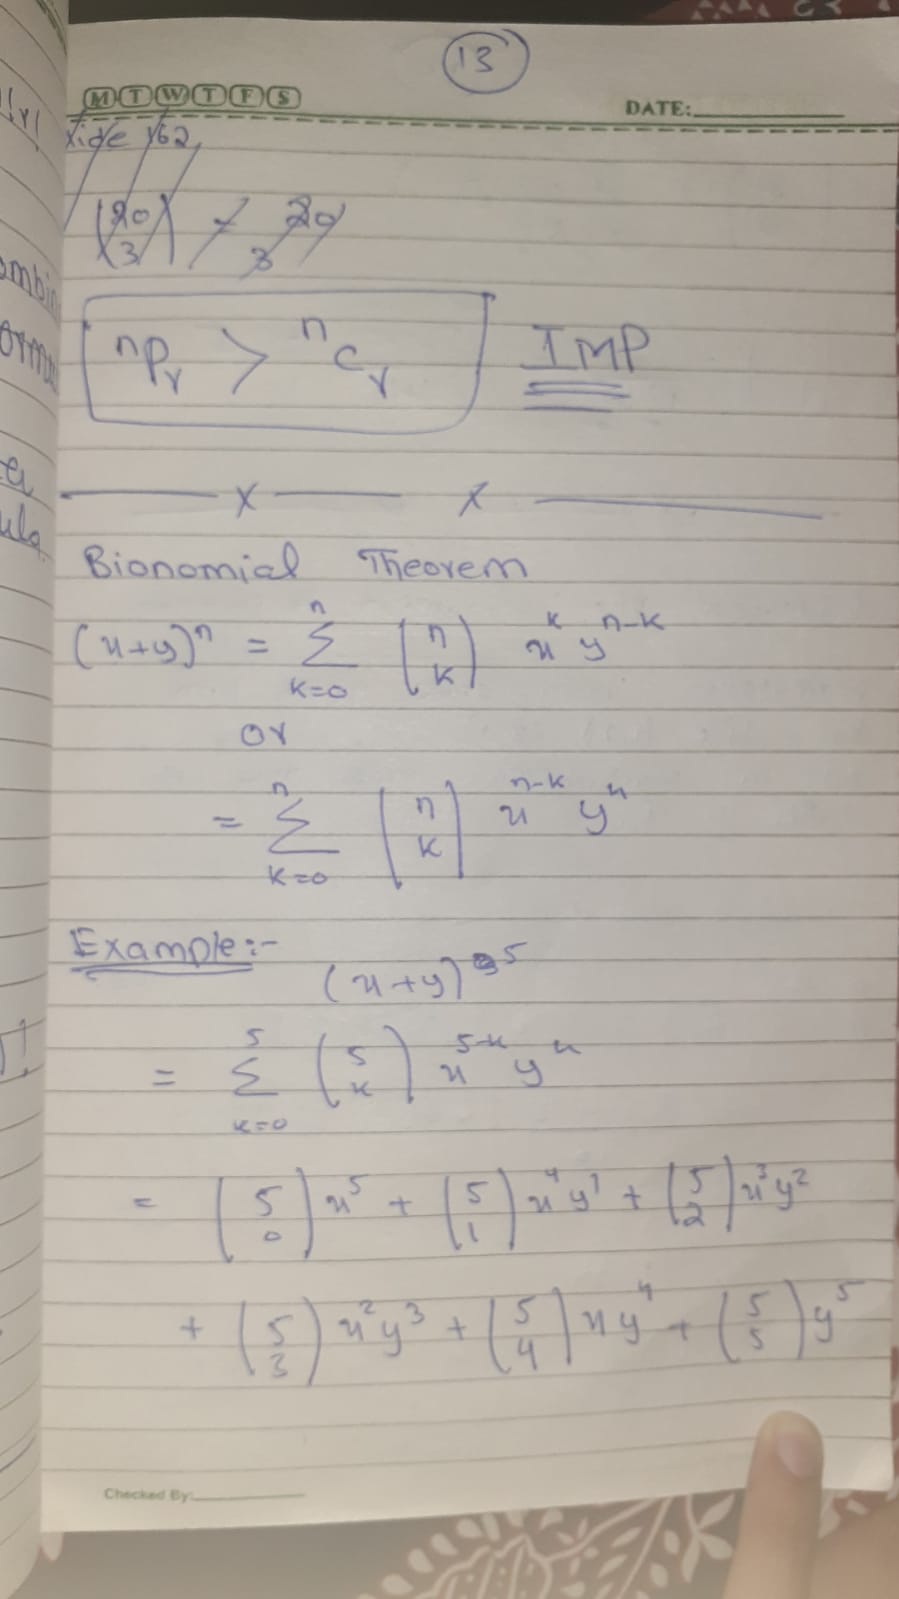 13
M T W T F S
DATE:
slide 162
(20 3) ≠ 20 3
nPr > nCr IMP
x x
Bionomial Theorem
(x+y)^n = Σ_{k=0}^{n} (n k) x^k y^{n-k}
or
= Σ_{k=0}^{n} (n k) x^{n-k} y^k
Example:-
(x+y)^5
= Σ_{k=0}^{5} (5 k) x^{5-k} y^k
= (5 0) x^5 + (5 1) x^4 y^1 + (5 2) x^3 y^2
+ (5 3) x^2 y^3 + (5 4) x y^4 + (5 5) y^5
Checked By: